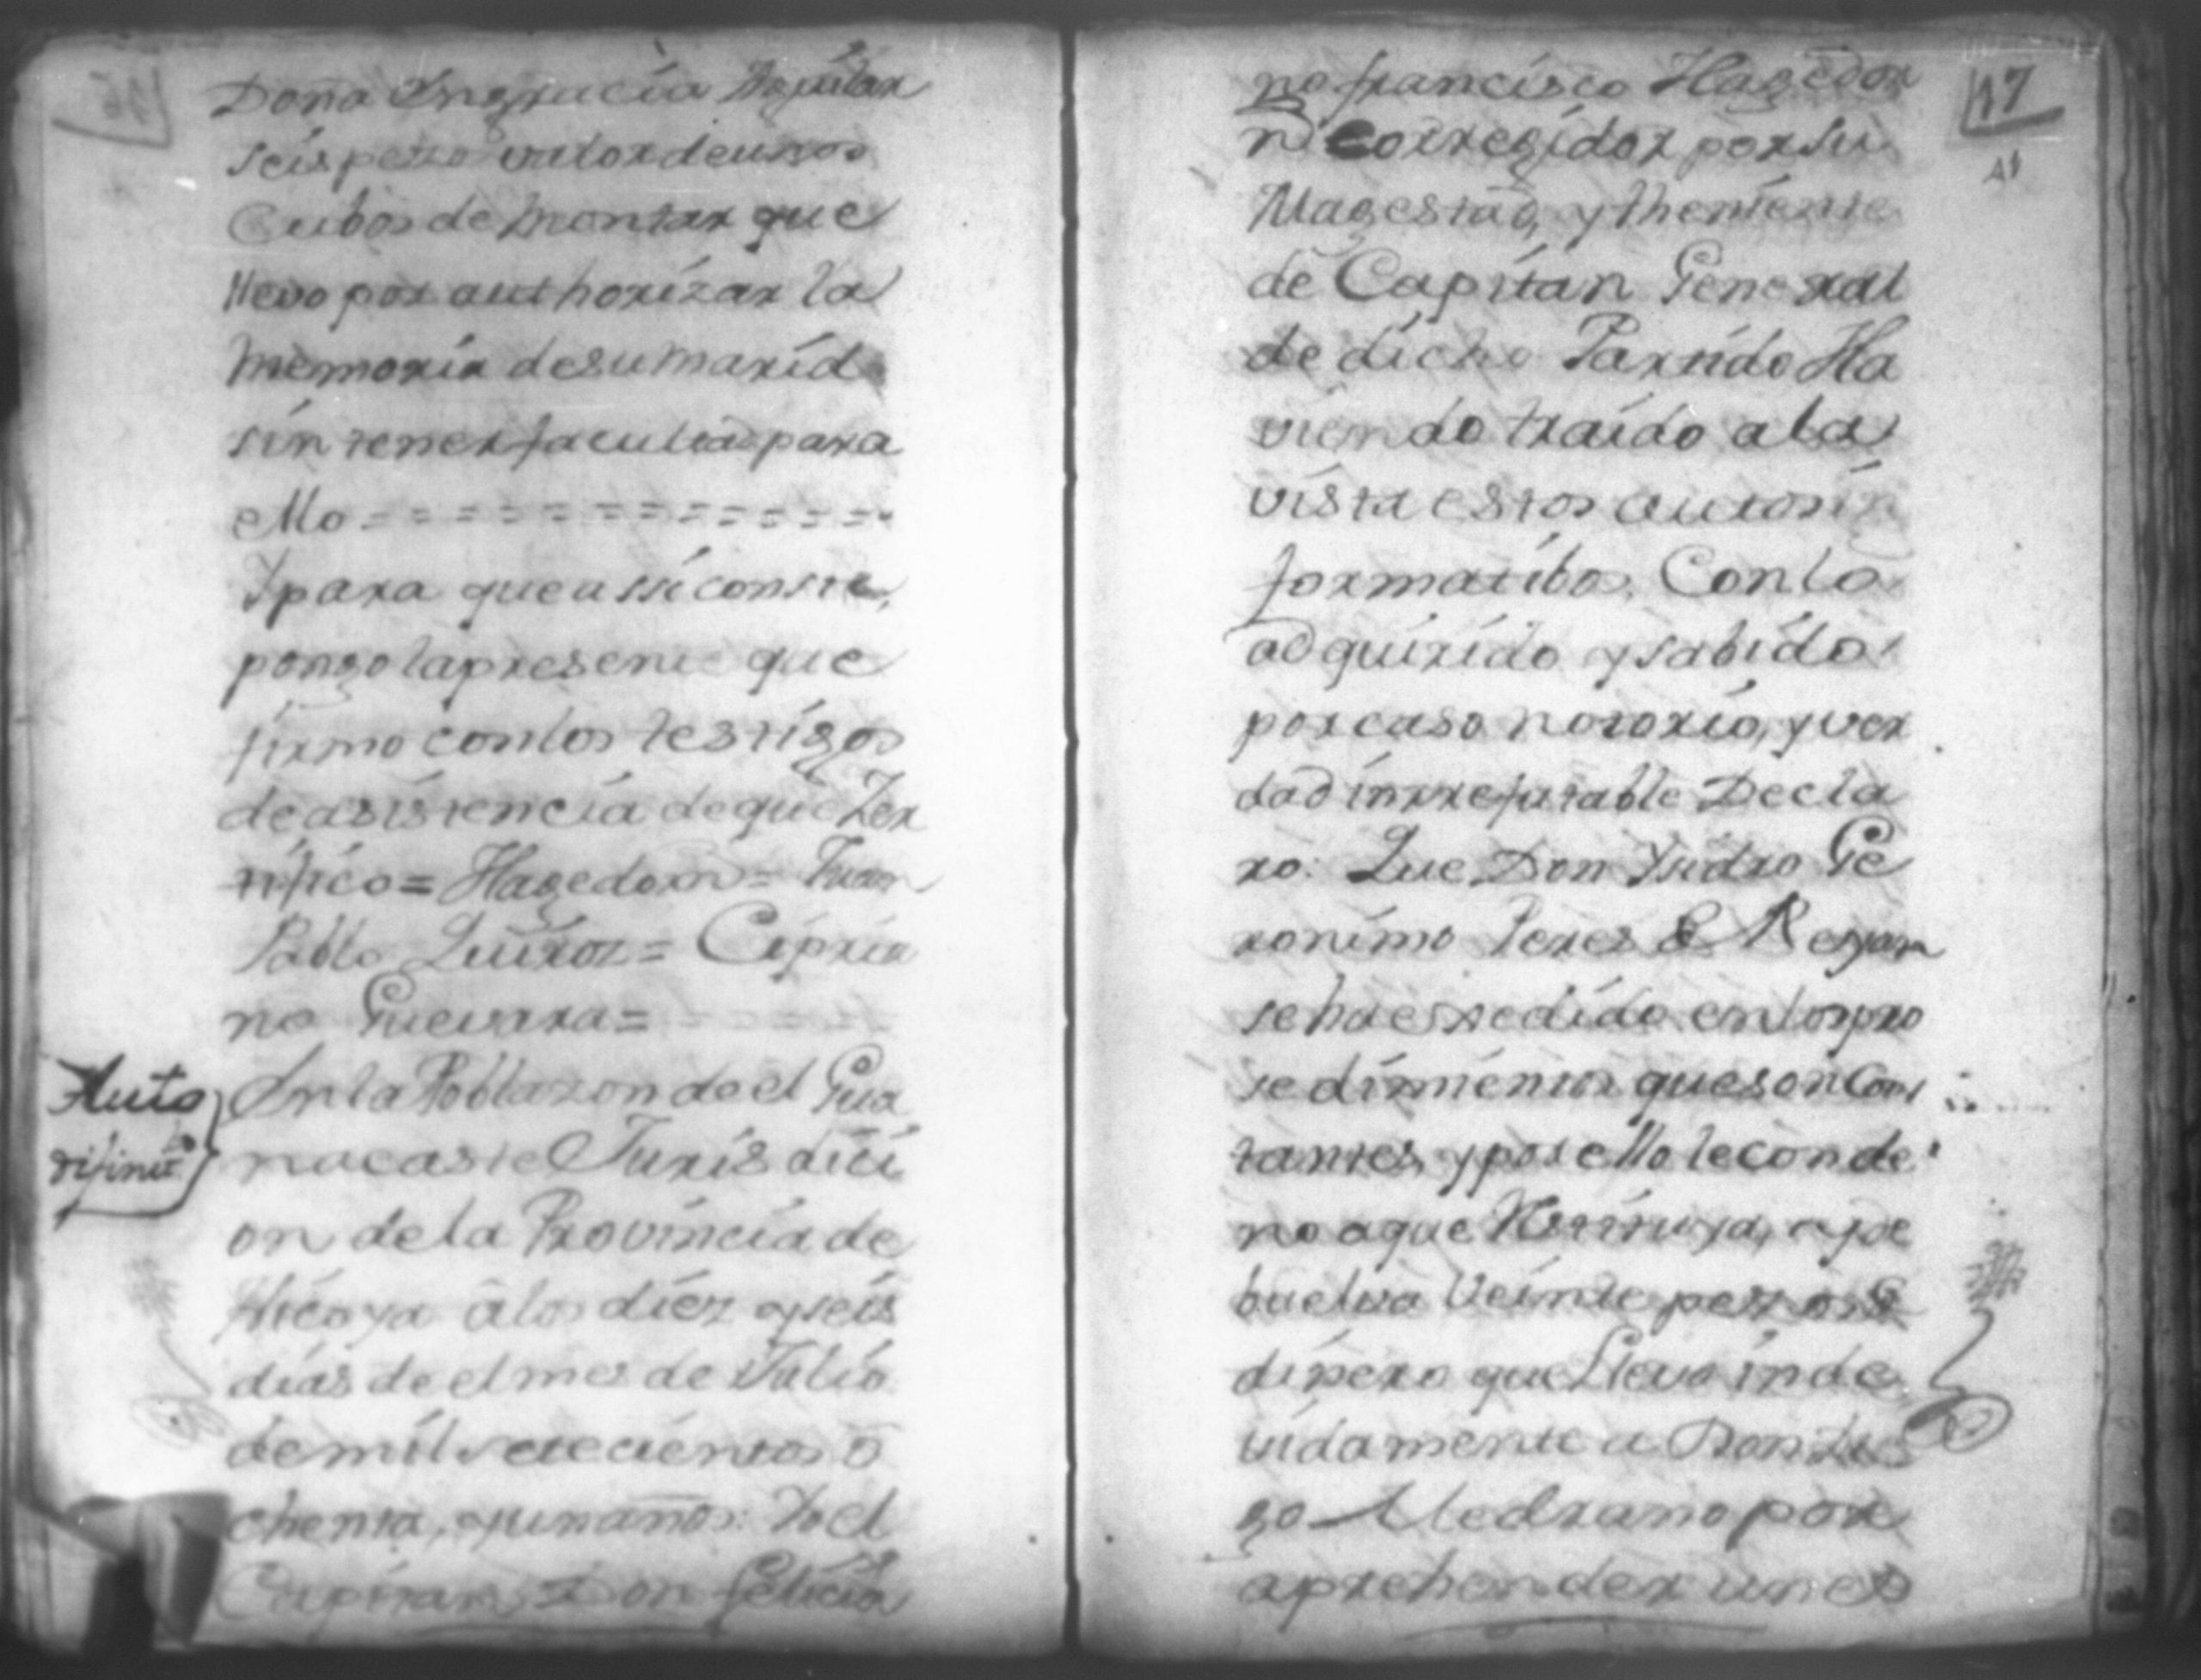 Doña Yngracia Aguilar
seis pezo valor de unos
Cubos de montar que
llevo por authorizar la
memoria de su marido
sin tener facultad para
ello = = = = = = = = = = = =
Y para que assi conste,
pongo la presente que
firmo con los testigos
de asistencia de que Zer
tifico = Hagedorn = Juan
Pablo Quiros = Cipria
no Guevara =
Auto
difinit.º
En la Poblazon de el Gua
nacaste Jurisdici
on de la Provincia de
Nicoya â los diez y seis
dias de el mes de Julio
de mil setecientos o
chenta, y un años: Yo el
Capitan Don Felicia
17
no francisco Hagedor
n Corregidor por Su
Magestad, y Theniente
de Capitan General
de dicho Partido Ha
viendo traido a la
vista estos autos in
formatibos, Con lo
adquirido y sabido
por caso notorio, y ver
dad inrrefutable Decla
ro: Que Don Ysidro Ge
ronimo Peres de
se ha essedido en los pro
sedimientos que son Cons
tantes, y por ello le conde
no a que Restituya, y de
buelva Veinte pezos de
dinero que Llevo inde
vidamente a Don Die
go Medrano por
aprehender un es